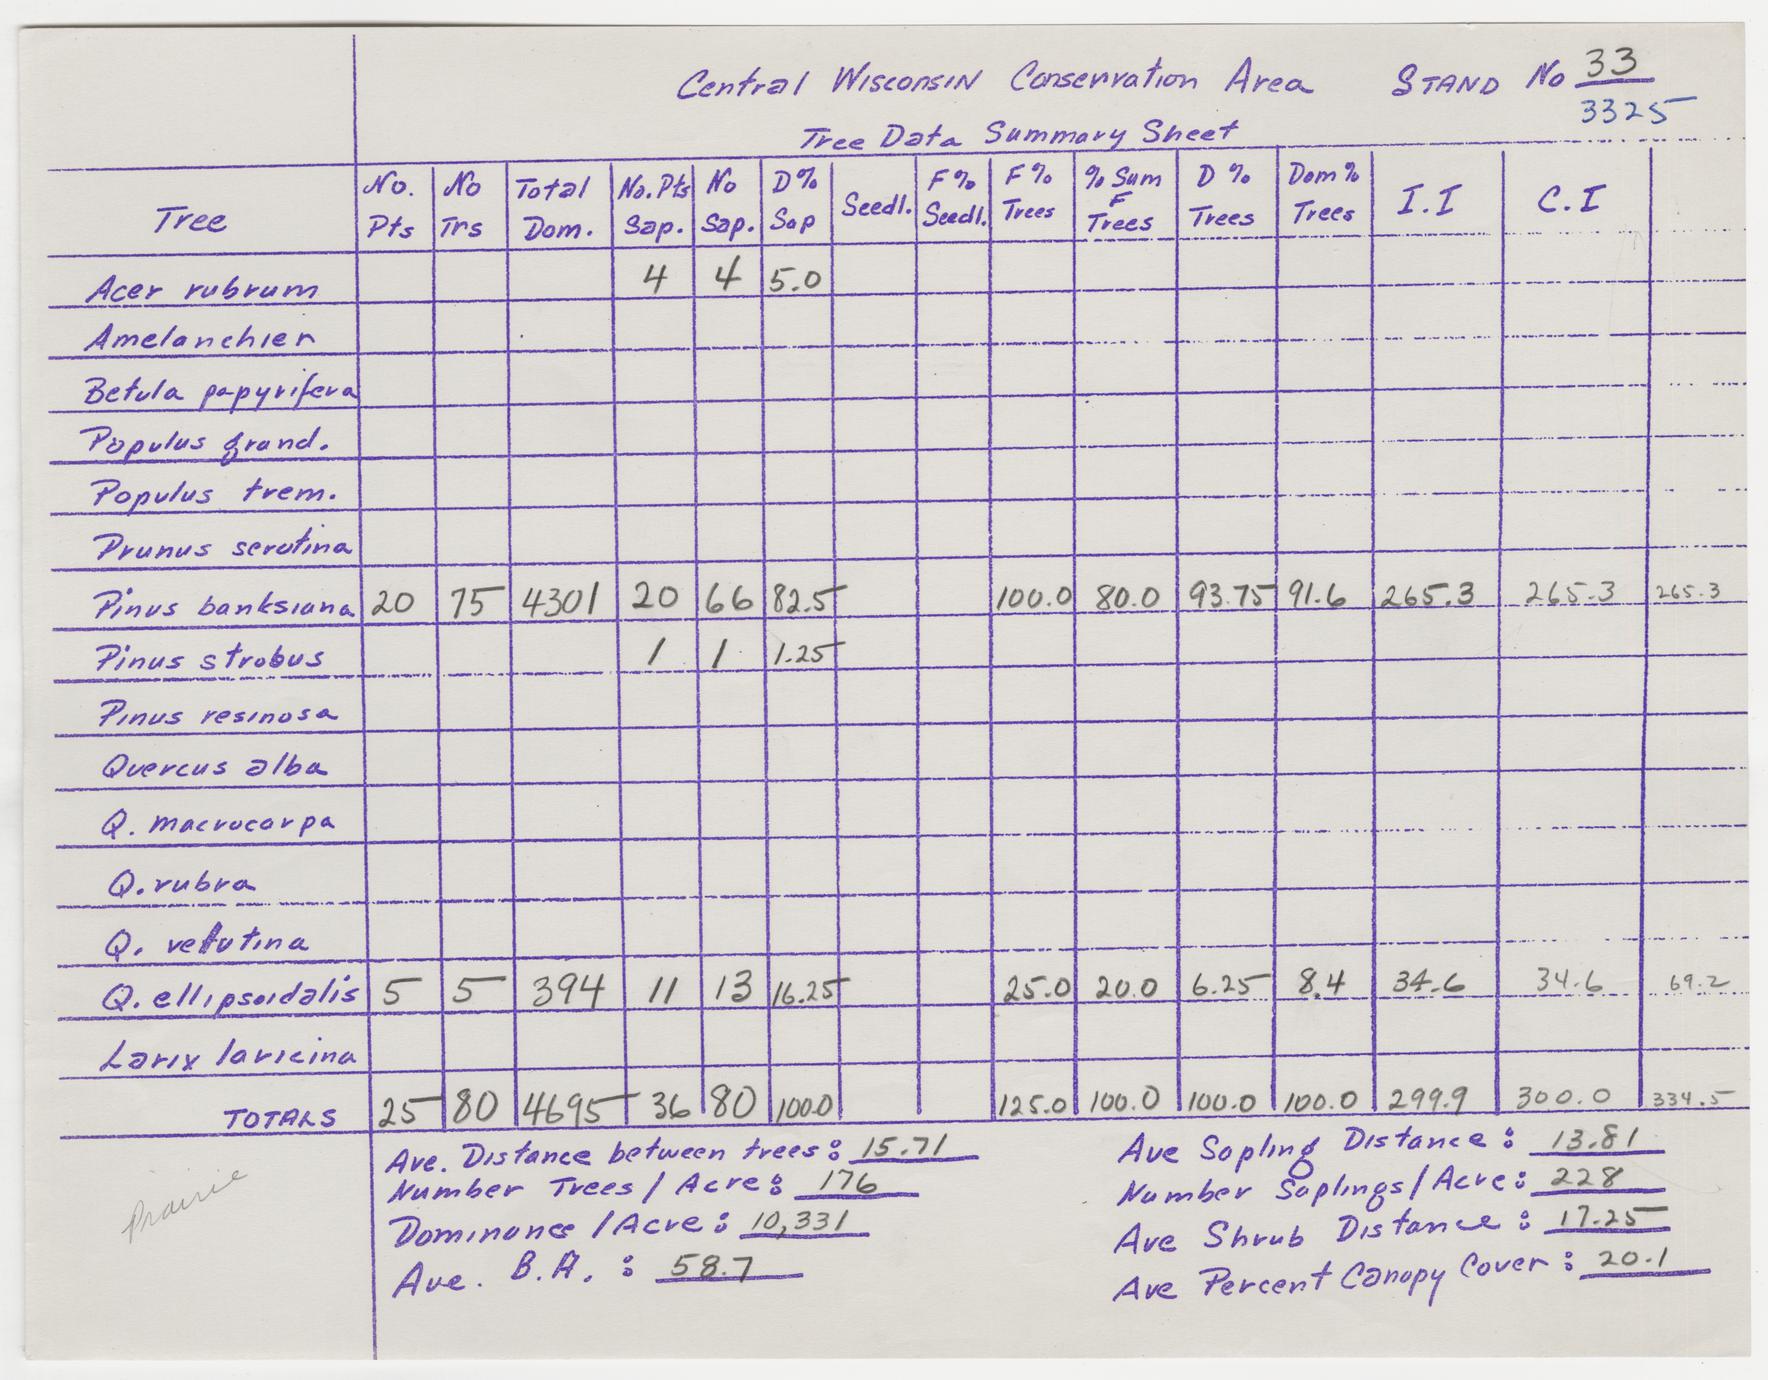 Central Wisconsin Conservation Area STAND No 33
3325
Tree Data Summary Sheet
Tree No. Pts No Trs Total Dom. No. Pts Sap. No Sap. D% Sap Seedl. F% Seedl. F% Trees % Sum F Trees D % Trees Dom % Trees I.I C.I
Acer rubrum 4 4 5.0
Amelanchier
Betula papyrifera
Populus grand.
Populus trem.
Prunus serotina
Pinus banksiana 20 75 4301 20 66 82.5 100.0 80.0 93.75 91.6 265.3 265.3 265.3
Pinus strobus 1 1 1.25
Pinus resinosa
Quercus alba
Q. macrocarpa
Q. rubra
Q. velutina
Q. ellipsoidalis 5 5 394 11 13 16.25 25.0 20.0 6.25 8.4 34.6 34.6 69.2
Larix laricina
TOTALS 25 80 4695 36 80 100.0 125.0 100.0 100.0 100.0 299.9 300.0 334.5
Ave. Distance between trees: 15.71
Number Trees / Acre: 176
Dominance / Acre: 10,331
Ave. B.A. : 58.7
Ave Sapling Distance: 13.81
Number Saplings / Acre: 228
Ave Shrub Distance: 17.25
Ave Percent Canopy Cover: 20.1
Prairie